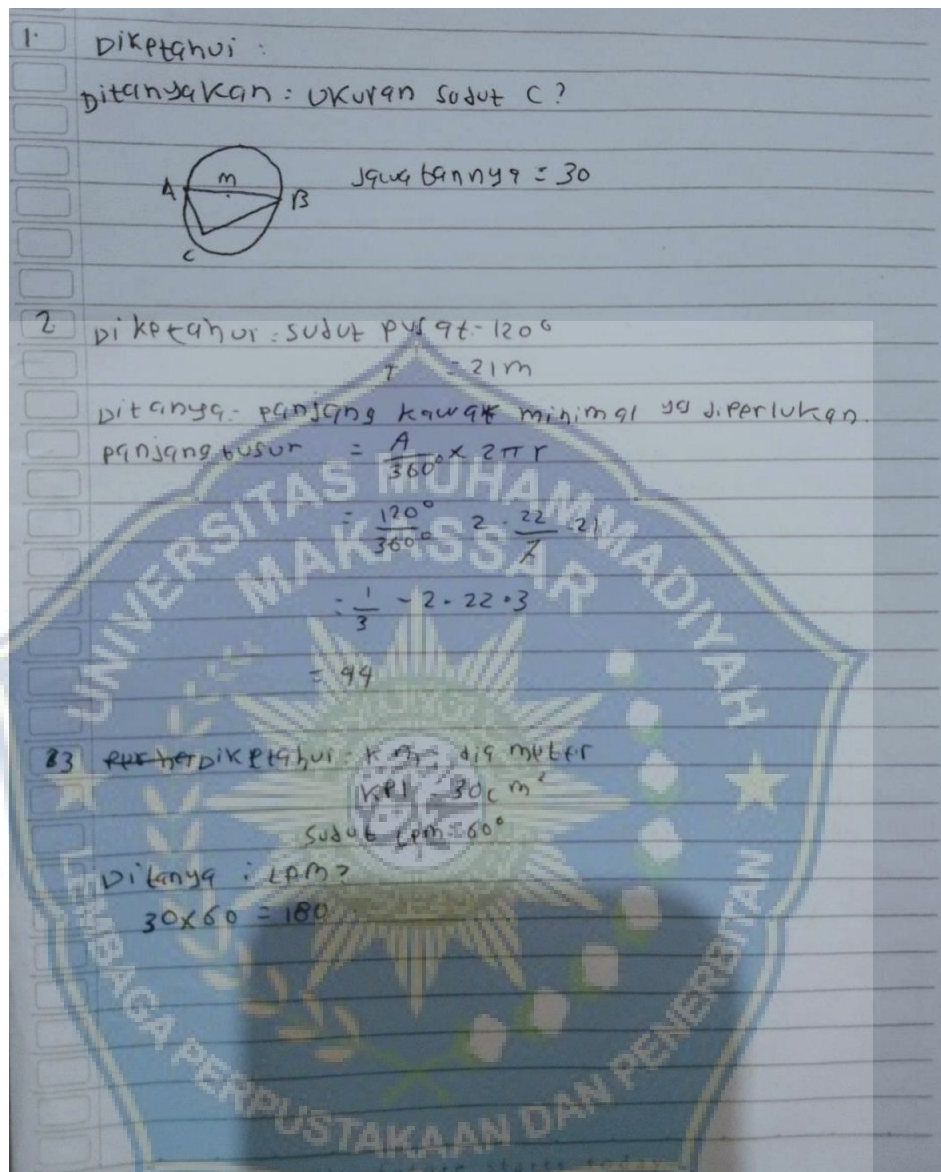 1.
Diketahui :
Ditanyakan : Ukuran sudut C?
m
Jawabannya = 30
A
B
C
2
Diketahui : sudut pusat = 120°
r = 21 m
Ditanya : panjang kawat minimal yg diperlukan.
panjang busur = A/360° × 2πr
= 120°/360° 2 . 22/7 . 21
= 1/3 - 2 . 22 . 3
= 44
3
Diketahui : diameter
KPL 30 cm²
sudut LPM = 60°
Ditanya : LPM?
30 × 60 = 180
UNIVERSITAS MUHAMMADIYAH
MAKASSAR
LEMBAGA PERPUSTAKAAN DAN PENERBITAN